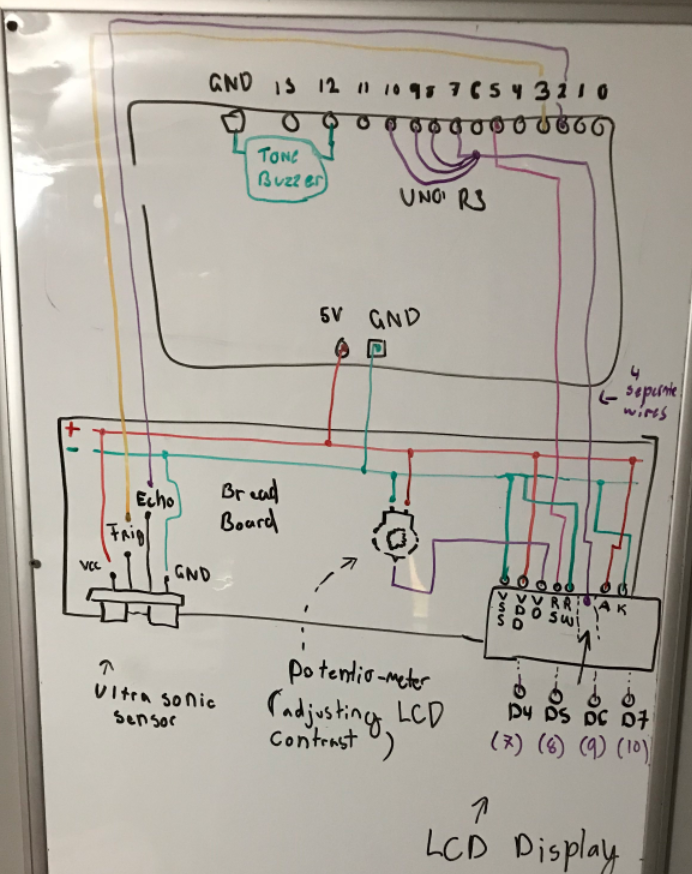 GND 13 12 11 10 9 8 7 6 5 4 3 2 1 0
TONE
BUZZER
UNO R3
5V GND
4
seperate
wires
+
-
Echo
Trig
Vcc
GND
Bread
Board
VSS VDD VO RS RW A K
D4 D5 D6 D7
(7) (8) (9) (10)
Ultra sonic
sensor
Potentio-meter
(adjusting LCD
contrast)
LCD Display